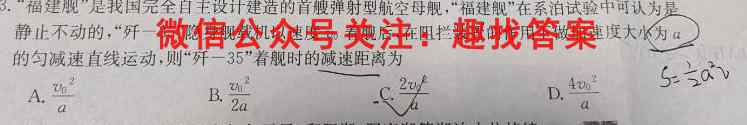 3. “福建舰”是我国完全自主设计建造的首艘弹射型航空母舰，“福建舰”在系泊试验中可认为是
静止不动的，“歼-35”隐形舰载机以速度 着舰后，在阻拦 作用下做加速度大小为 a
微信公众号关注：趣找答案
的匀减速直线运动，则“歼－35”着舰时的减速距离为
S=½a²
A. v₀²/a B. v₀²/2a C. 2v₀²/a D. 4v₀²/a